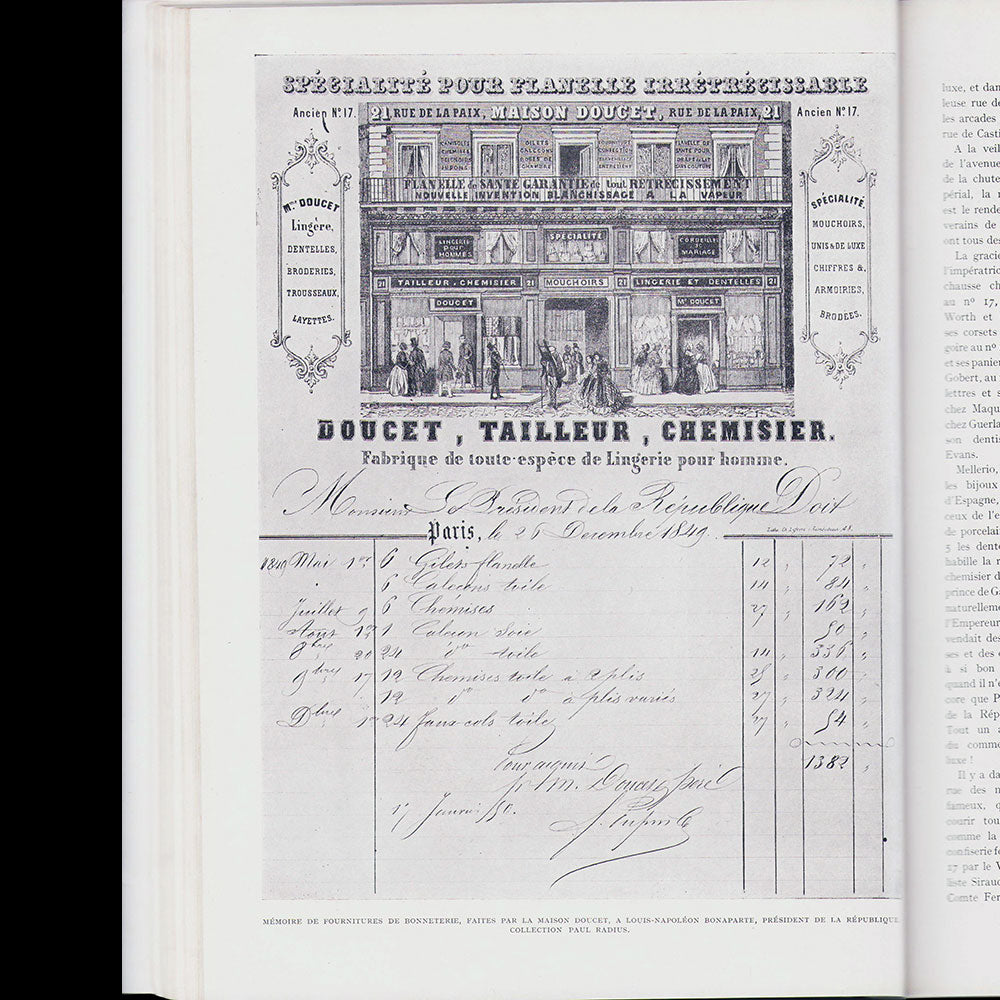 SPÉCIALITÉ POUR FLANELLE IRRÉTRÉCISSABLE
Ancien No. 17.
21 RUE DE LA PAIX, MAISON DOUCET, RUE DE LA PAIX, 21
Ancien No. 17.
CAMISOLES
CHEMISES
GILETS
CALEÇONS
ROBES DE CHAMBRE
FLANELLE DE
SANTÉ POUR
FLANELLE de SANTÉ GARANTIE de tout RETRECISSEMENT
NOUVELLE INVENTION BLANCHISSAGE A LA VAPEUR
LINGERIE
POUR
HOMMES
SPECIALITÉ
CORBEILLE
DE
MARIAGE
21 TAILLEUR. CHEMISIER 21 MOUCHOIRS 21 LINGERIE ET DENTELLES 21
DOUCET
Me DOUCET
Mme DOUCET
Lingère,
DENTELLES,
BRODERIES,
TROUSSEAUX,
LAYETTES.
SPÉCIALITÉ,
MOUCHOIRS,
UNIS & DE LUXE
CHIFFRES &,
ARMOIRIES,
BRODÉES.
DOUCET, TAILLEUR, CHEMISIER.
Fabrique de toute espèce de Lingerie pour homme.
Monsieur Le Président de la République Doit
Paris, le 26 Decembre 1849.
1849 Mai 1er 6 Gilets flanelle 12 " 72 "
6 Caleçons toile 14 " 84 "
Juillet 9 6 Chemises 27 " 162 "
Aout 1 Calecon Soie 50 "
8bre 20 24 do toile 14 " 336 "
9bre 17 12 Chemises toile à 2 plis 25 " 300 "
12 do do à plis variés 27 " 324 "
Dbre 24 faux-cols toile 54 "
1382 "
Pour acquit
pr M. Doucet père
17 Janvier /50.
MÉMOIRE DE FOURNITURES DE BONNETERIE, FAITES PAR LA MAISON DOUCET, A LOUIS-NAPOLÉON BONAPARTE, PRÉSIDENT DE LA RÉPUBLIQUE
COLLECTION PAUL RADIUS.
luxe, et dan
leuse rue de
les arcades
rue de Casti
A la veil
de l'avenue
de la chute
périal, la
est le rende
verains de
ont tous des
La gracie
l'impératric
chausse ch
au nº 17,
Worth et
ses corsets
goire au nº
et ses panier
Gobert, au
lettres et s
chez Maqu
chez Guerla
son dentis
Evans.
Mellerio,
les bijoux
d'Espagne,
ceux de l'e
de porcelain
5 les dente
habille la r
chemisier d
prince de Ga
naturelleme
l'Empereur
vendait des
ses et des
à si bon
quand il n'e
core que P
de la Rép
Tout un a
du comme
luxe !
Il y a da
rue des m
fameux, q
courir tou
comme la
confiserie fo
17 par le V
liste Siraud
Comte Fer